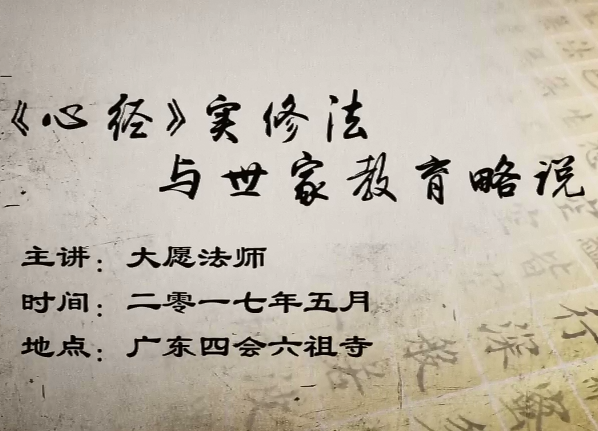 《心经》实修法
与世家教育略说
主讲：大愿法师
时间：二零一七年五月
地点：广东四会六祖寺